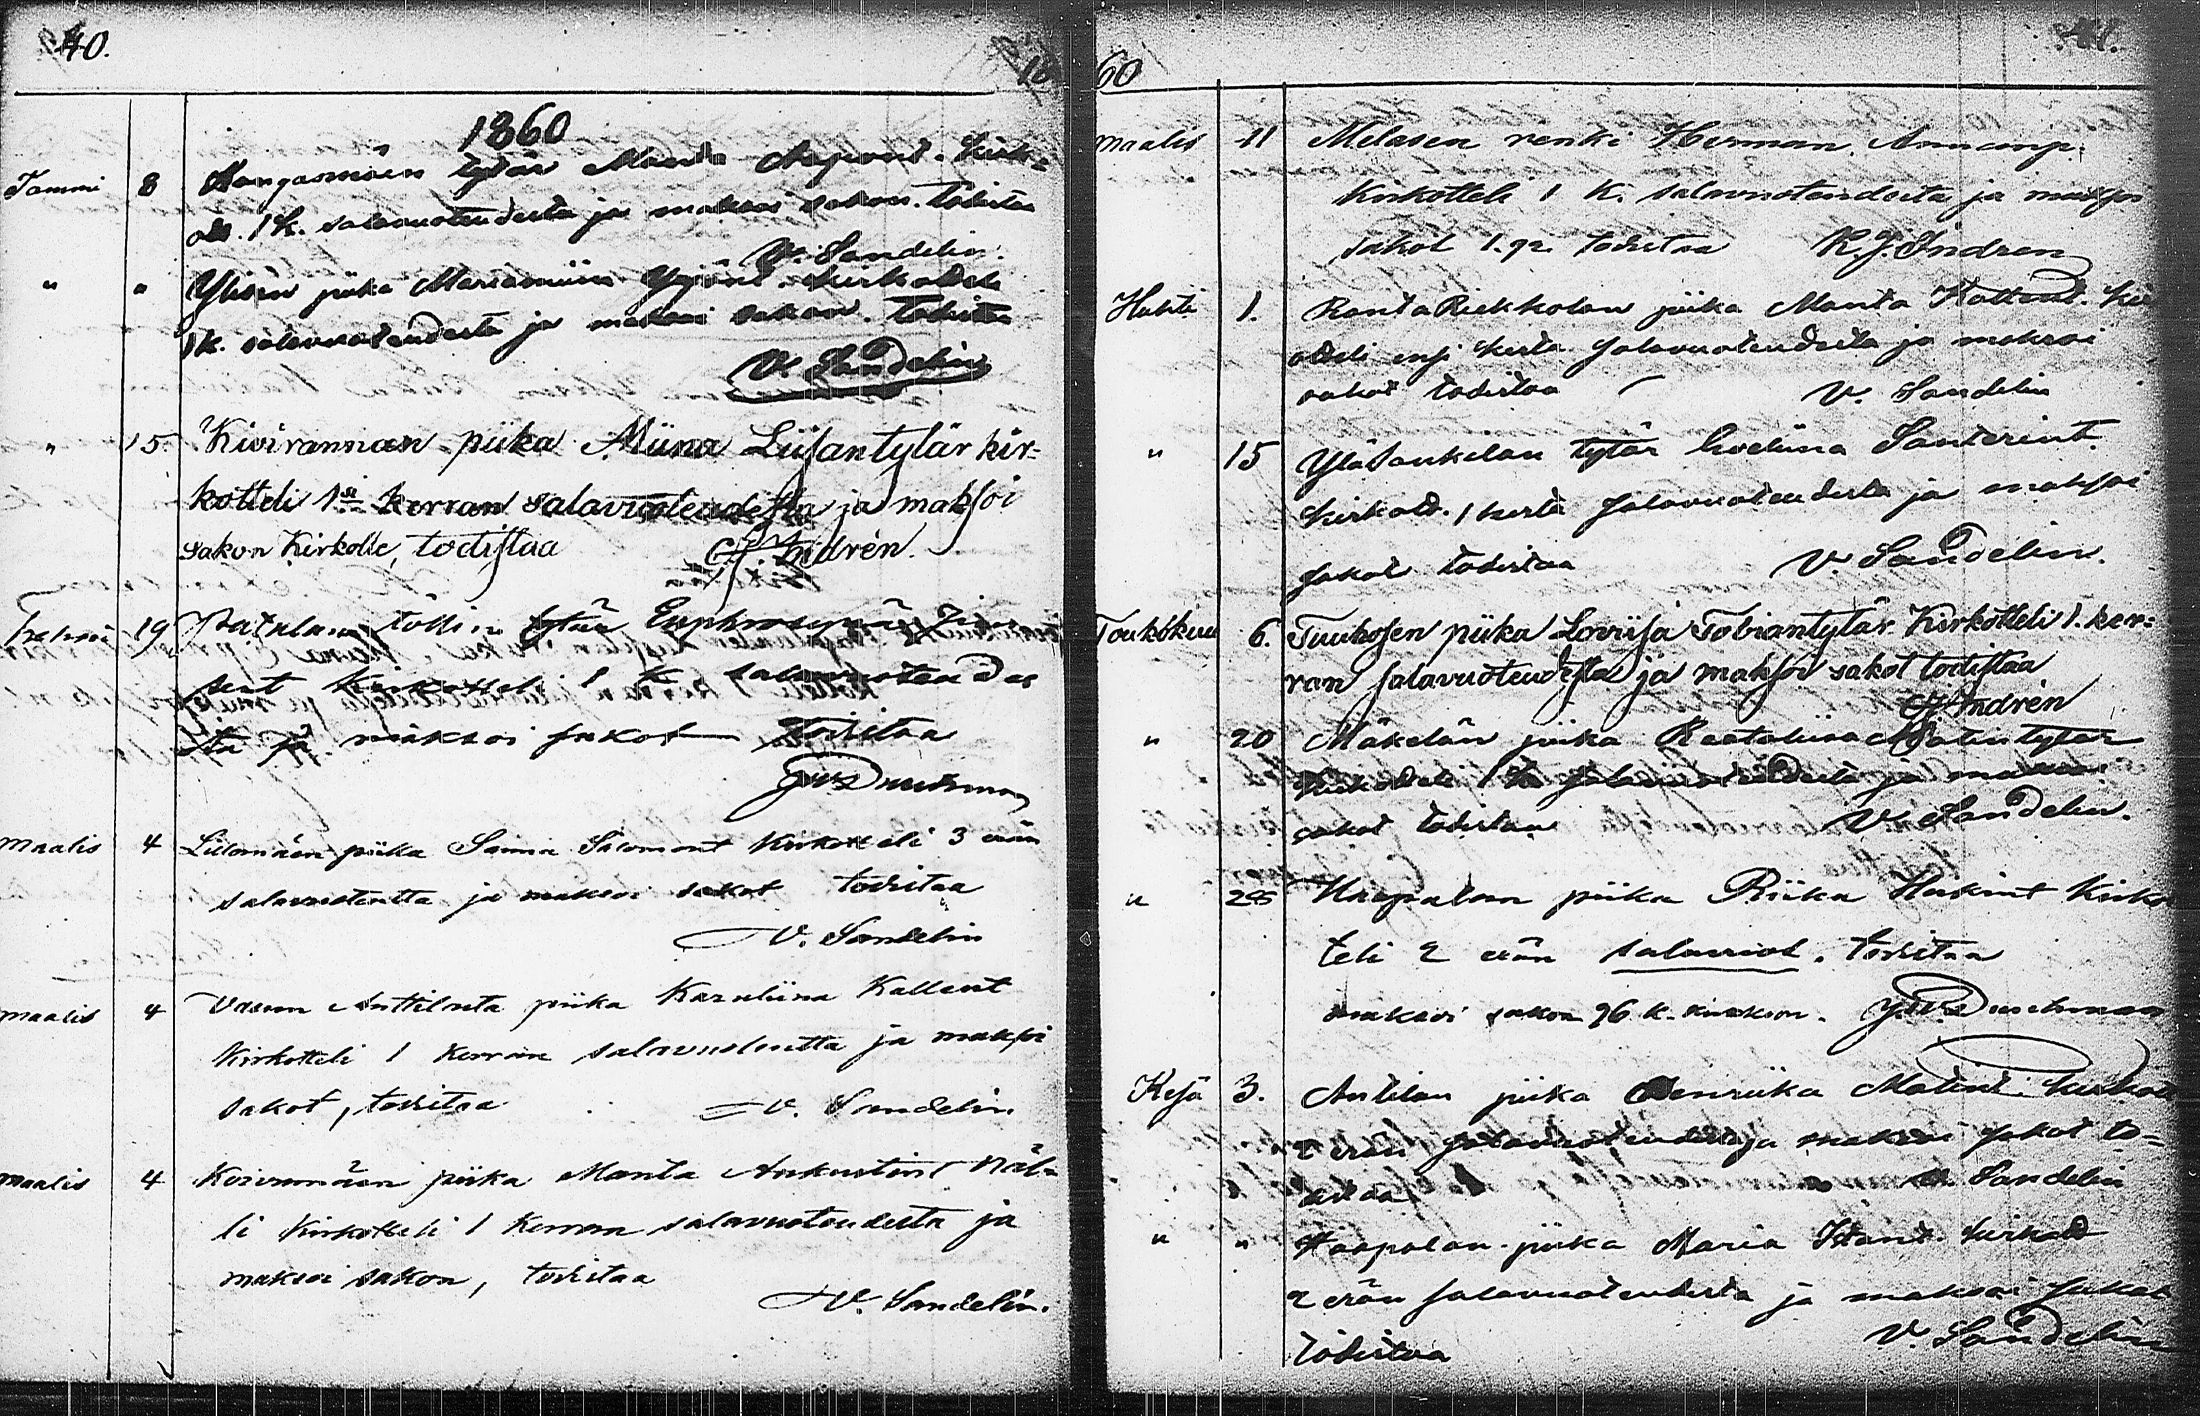 40.
1860
Tammi 8 Kangasmäen tytär Manta Aapont. Kirk-
ott. 1 k. salavuoteudesta ja maksoi sakon. todistaa
V. Sandelin.
" " Ylisen piika Mariamiina Yrjönt. kirkotteli
1 k. salavuoteudesta ja maksoi sakon. todistaa
V. Sandelin
" 15. Kivirannan piika Miina Liisantytär kir-
kotteli 1si kerran salavuoteudesta ja maksoi
sakon Kirkolle, todistaa Indrén.
19 töllin tytär
kirkotteli 1 k salavuoteudes
ta ja maksoi sakot todistaa
maalis 4 Liilomäen piika Sanna Salomont kirkotteli 3 erän
salavuoteutta ja maksoi sakot todistaa
V. Sandelin
maalis 4 Anttilasta piika Karuliina Kallent
kirkotteli 1 kerran salavuoteutta ja maksoi
sakot, todistaa V. Sandelin
maalis 4 Koivumäen piika Manta Aukustint
li kirkotteli 1 kerran salavuoteudesta ja
maksoi sakon, todistaa
V. Sandelin.
60
maalis 11 Melasen renki Herman
kirkotteli 1 k. salavuoteudesta ja maksoi
sakot 1.92. todistaa K. J. Indren
Huhti 1. Ranta Riekkolan piika Manta Kallent. kir
otteli ensi kerta salavuoteudesta ja maksoi
sakot todistaa V. Sandelin
" 15 Ylä Sankilan tytär Eveliina Santerint.
kirkott. 1 kerta salavuoteudesta ja maksoi
sakot todistaa V. Sandelin.
Toukokuu 6. Tuuhosen piika Loviisa Tobiantytär Kirkotteli 1. ker-
ran salavuoteudesta ja maksoi sakot todistaa
Indrén
" 20 Mäkelän piika Reetaliisa Matintytär
kirkotteli 1 k. salavuoteudesta ja maksoi
sakot todistaa V. Sandelin.
" 28 Haapalan piika Riika Heikint kirko
teli 2 erän salavuot. todistaa
maksoi sakon 96 k. kirkon.
Kesä 3. Antilan piika Henriika Matint. kirkott
2 erän salavuoteudesta ja maksoi sakot to-
distaa V. Sandelin
" " Haapalan piika Maria kirkott
2 erän salavuoteudesta ja maksoi sakot
todistaa V. Sandelin